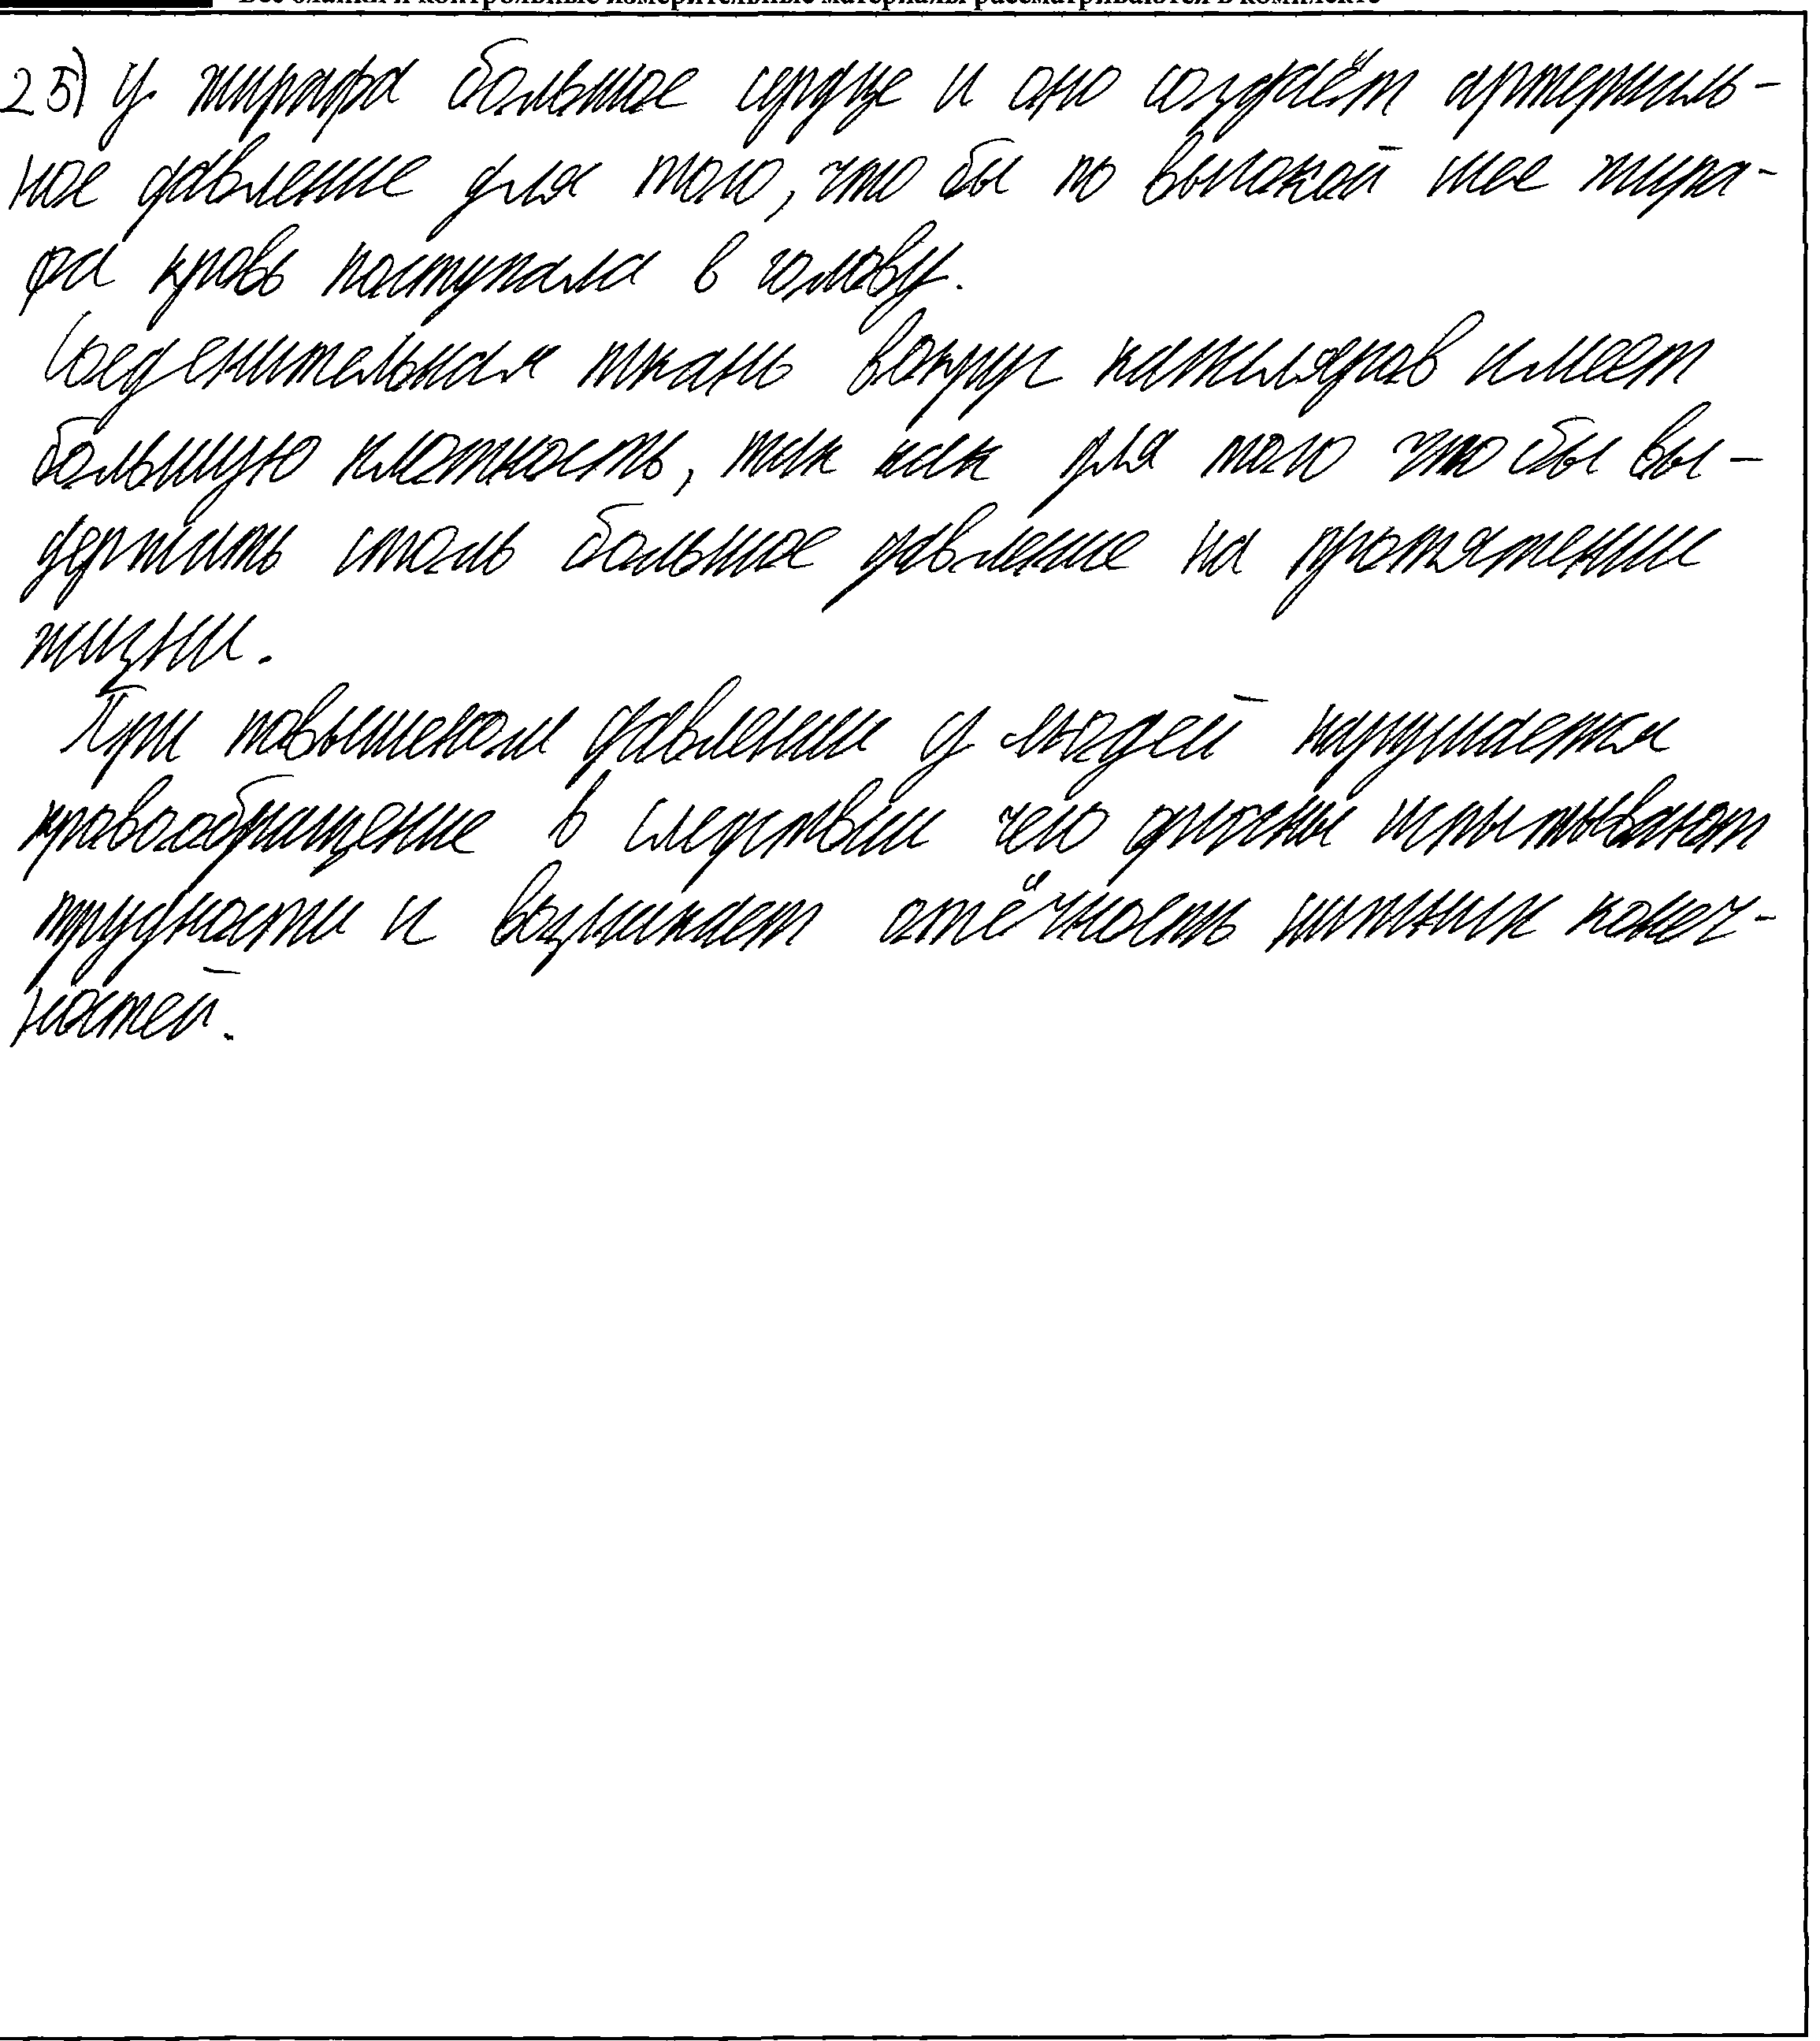 Все бланки и контрольные измерительные материалы рассматриваются в комплекте
25) У жирафа большое сердце и оно создаёт артериаль-
ное давление для того, что бы по высокой шее жира-
фа кровь поступала в голову.
Соеденительная ткань вокруг капиляров имеет
большую плотность, так как для того что бы вы-
держать столь большое давление на протяжении
жизни.
При повышеном давлении у людей нарушается
кровообращение в следствии чего органы испытывают
трудности и возникает отёчность нижних конеч-
ностей.